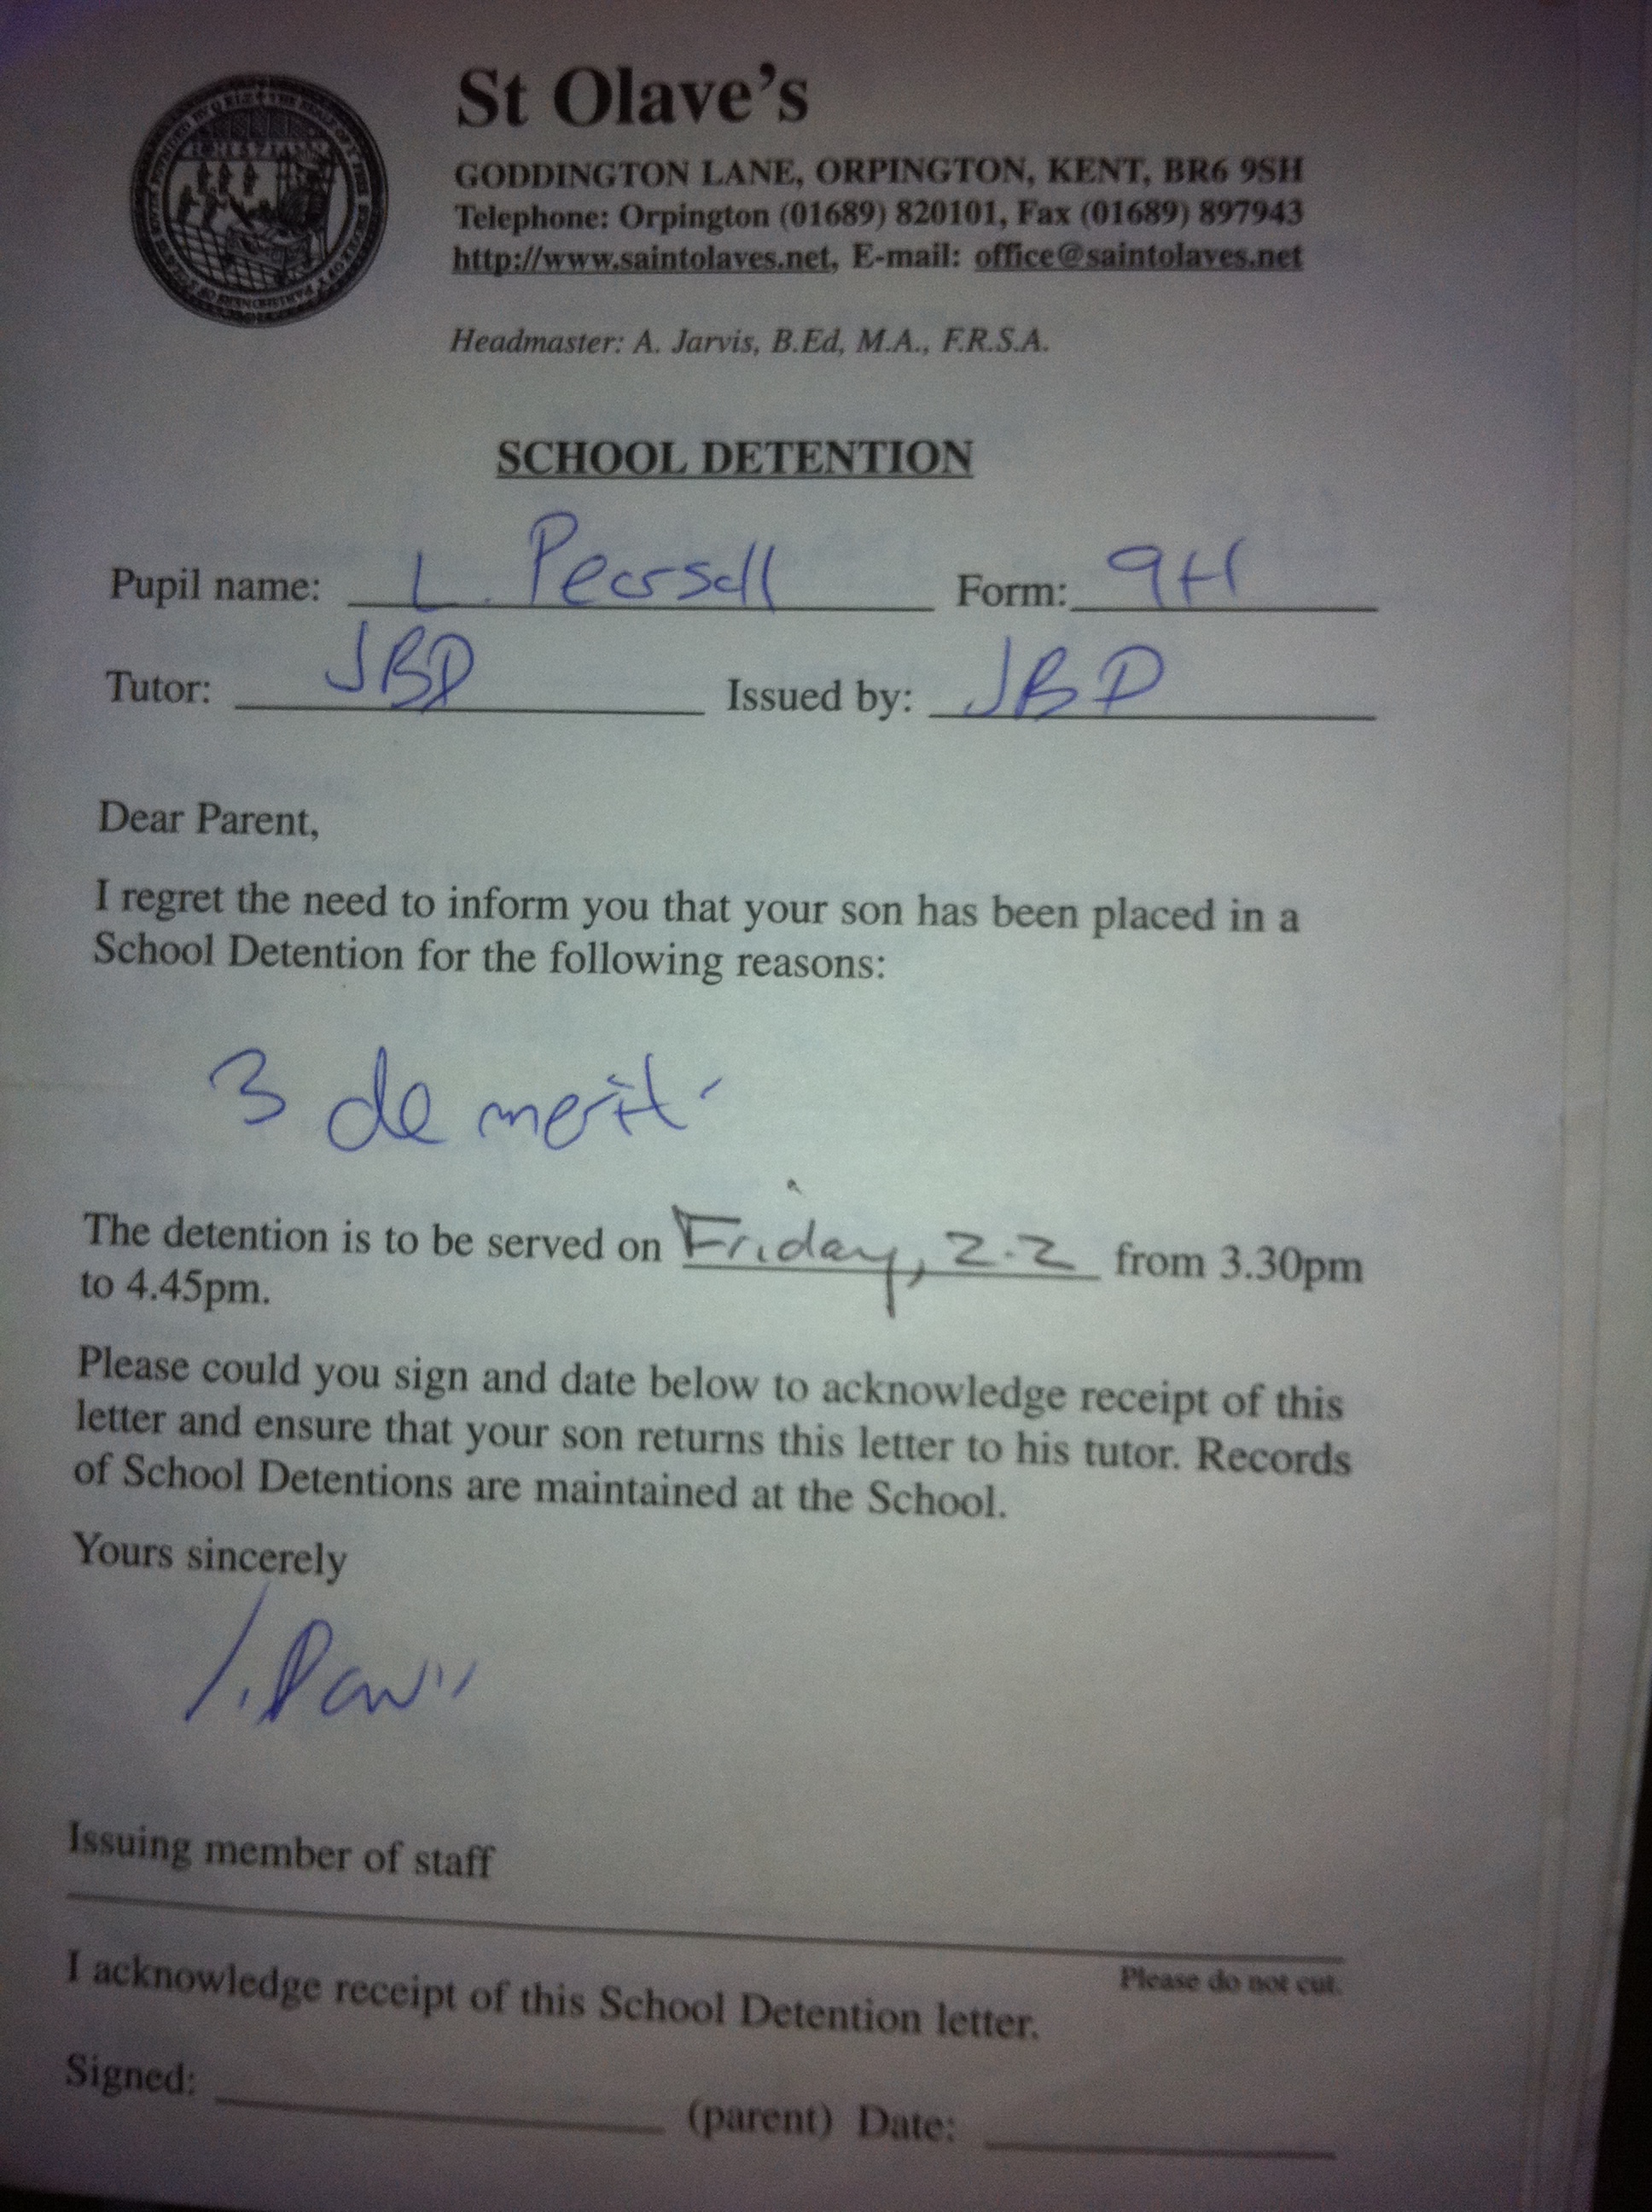 St Olave's
GODDINGTON LANE, ORPINGTON, KENT, BR6 9SH
Telephone: Orpington (01689) 820101, Fax (01689) 897943
http://www.saintolaves.net, E-mail: office@saintolaves.net
Headmaster: A. Jarvis, B.Ed, M.A., F.R.S.A.
SCHOOL DETENTION
Pupil name: L. Pearsall Form: 9H
Tutor: JBD Issued by: JBD
Dear Parent,
I regret the need to inform you that your son has been placed in a
School Detention for the following reasons:
3 de merits
The detention is to be served on Friday, 2.2 from 3.30pm
to 4.45pm.
Please could you sign and date below to acknowledge receipt of this
letter and ensure that your son returns this letter to his tutor. Records
of School Detentions are maintained at the School.
Yours sincerely
Issuing member of staff
Please do not cut.
I acknowledge receipt of this School Detention letter.
Signed: (parent) Date: